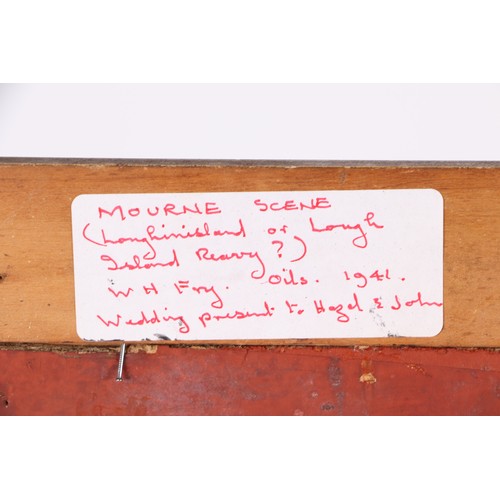 MOURNE SCENE
(Loughinisland or Lough
Island Reavy?)
W H Fry. Oils. 1941.
Wedding present to Hazel & John